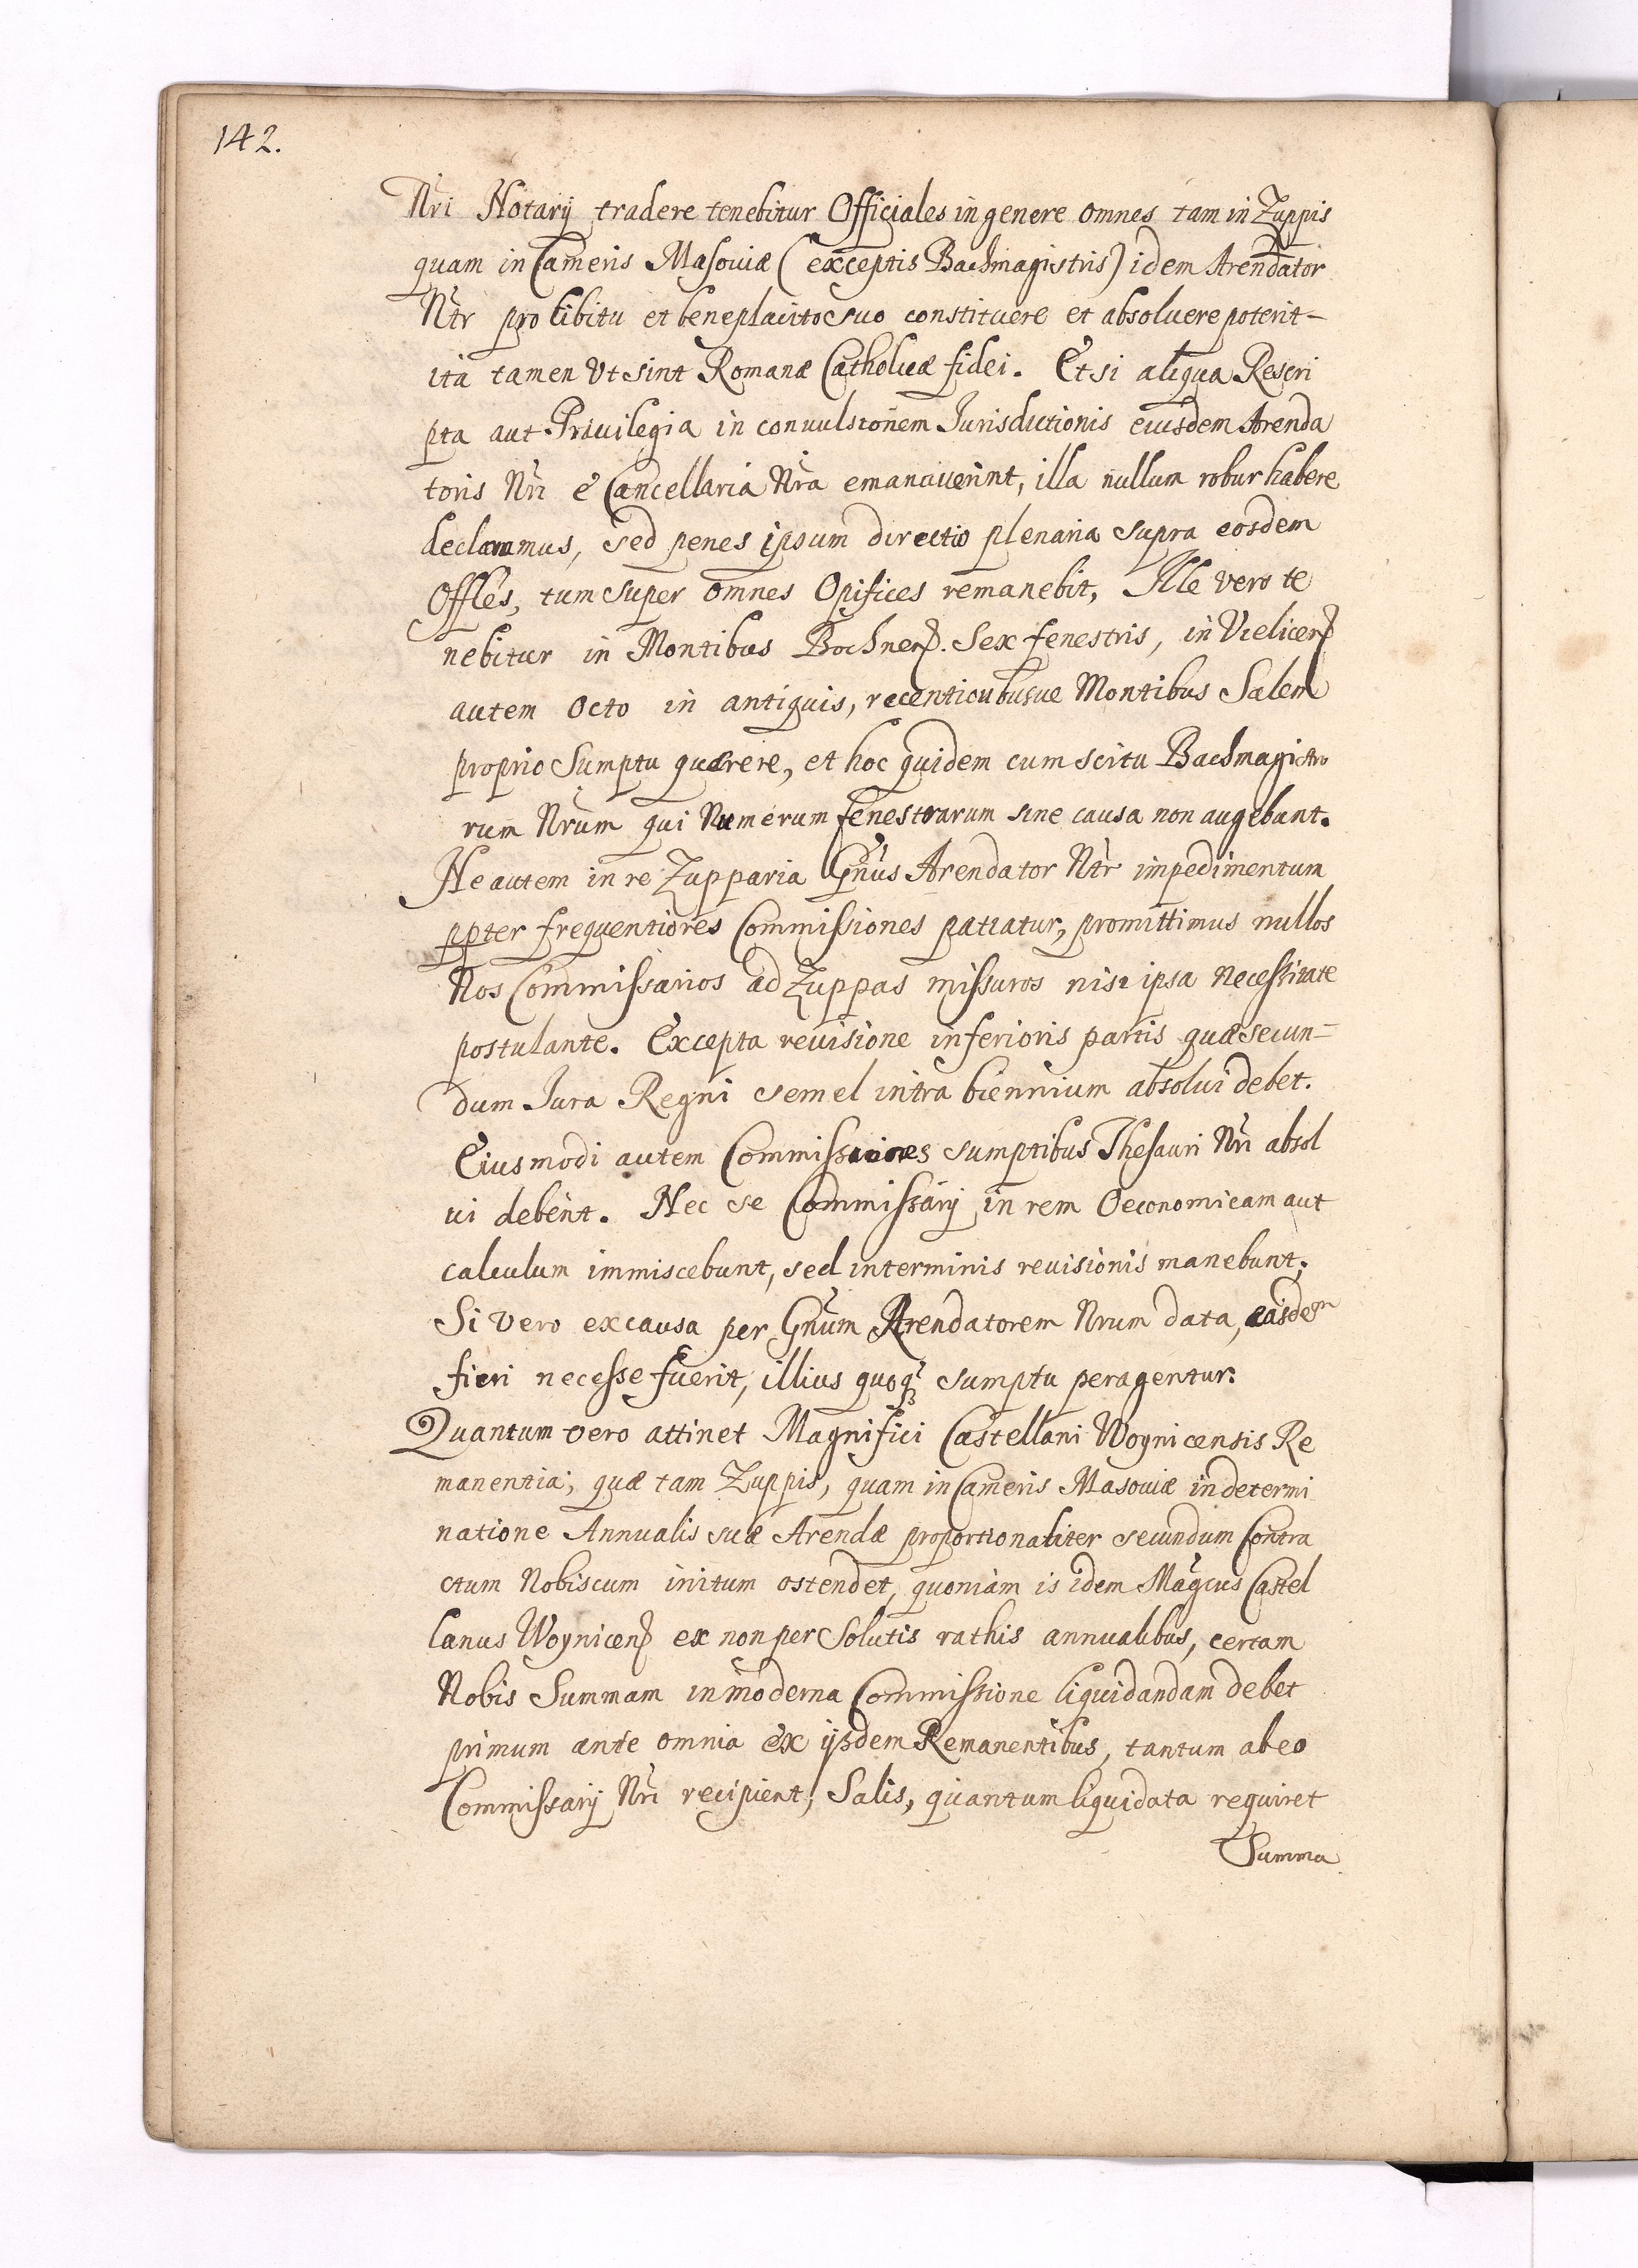 142.
Nri Notarij tradere tenebitur Officiales in genere omnes tam in Zuppis
quam in Cameris Masouiæ (exceptis Bachmagistris) idem Arendator
Ntr pro libitu et beneplacito suo constituere et absoluere poterit-
ita tamen Vt sint Romanæ Catholicæ fidei. Et si aliqua Rescri
pta aut Priuilegia in conuulsionem Jurisdictionis eiusdem Arenda
toris Nri e Cancellaria Nra emanauerint, illa nullum robur habere
declaramus, sed penes ipsum directio plenaria supra eosdem
Offles, tum super omnes Opifices remanebit, Ille vero te
nebitur in Montibus Bochnen. Sex fenestris, in Vielicen
autem octo in antiquis, recentioribusue Montibus Salem
proprio Sumptu quærere, et hoc quidem cum scitu Bachmagistro
rum Nrum qui Numerum fenestrarum sine causa non augebunt.
Ne autem in re Zupparia Gnus Arendator Ntr impedimentum
ppter frequentiores Commissiones patiatur, promittimus nullos
Nos Commissarios ad Zuppas missuros nisi ipsa necessitate
postulante. Excepta reuisione inferioris partis quæ secun=
dum Jura Regni semel intra biennium absolui debet.
Eiusmodi autem Commissiones sumptibus Thesauri Nri absol
ui debent. Nec se Commissarij in rem Oeconomicam aut
calculum immiscebunt, sed in terminis reuisionis manebunt;
Si vero ex causa per Gnum Arendatorem Nrum data, easdem
fieri necesse fuerit, illius quoq sumptu peragentur:
Quantum vero attinet Magnifici Castellani Woynicensis Re
manentia; quæ tam Zuppis, quam in Cameris Masouiæ in determi
natione Annualis suæ Arendæ proportionaliter secundum Contra
ctum Nobiscum initum ostendet, quoniam is idem Magcus Castel
lanus Woynicen ex non per Solutis rathis annualibus, certam
Nobis Summam in moderna Commissione liquidandam debet
primum ante omnia ex ijsdem Remanentibus, tantum ab eo
Commissarij Nri recipient, Salis, quantum liquidata requiret
Summa